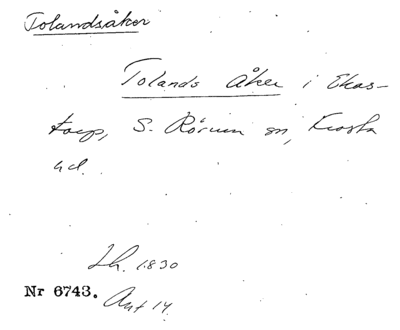 Tolandsåker
Tolands åker i Ekas-
torp, S. Rörum sn, Frosta
hd.
Lh. 1830
Nr 6743.
Ant 14.